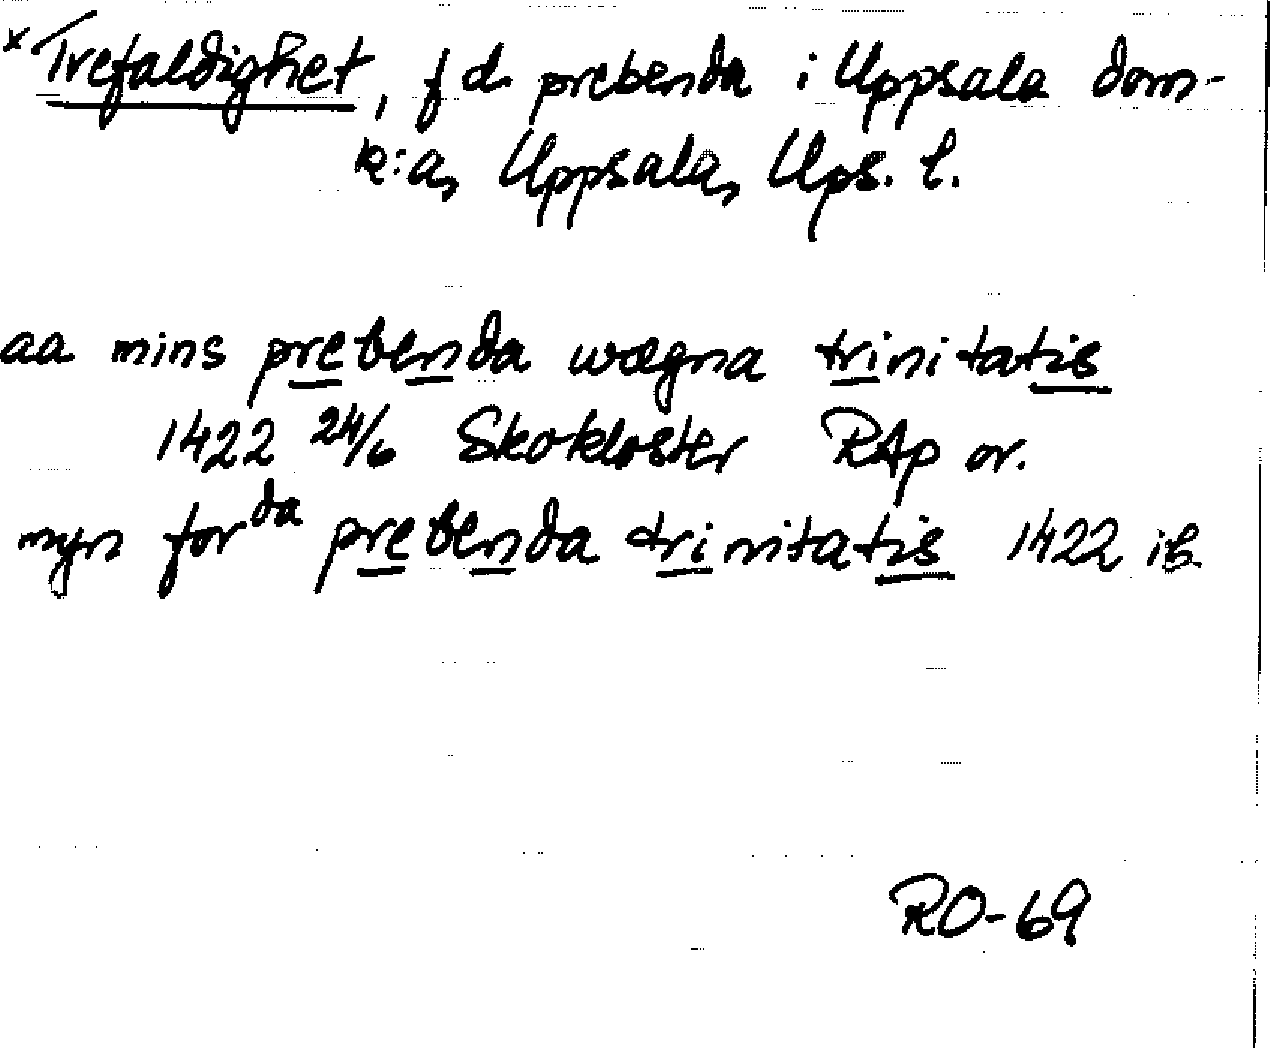 x Trefaldighet, f d. prebenda i Uppsala dom-
k:a, Uppsala, Ups. l.
aa mins prebenda wægna trinitatis
1422 24/6 Skokloster RAp or.
myn for da prebenda trinitatis 1422 ib.
RO-69